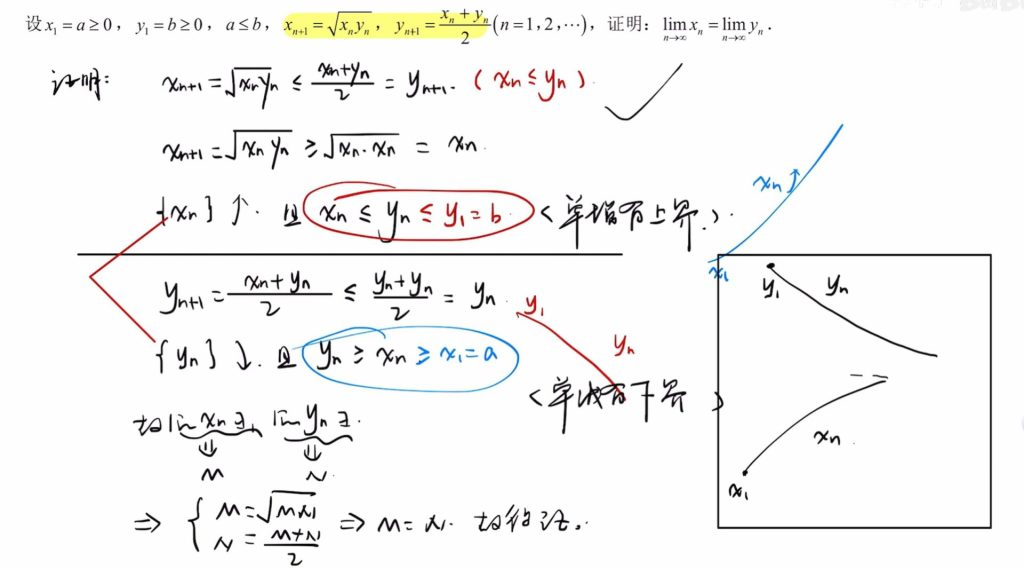 设 x₁ = a ≥ 0，y₁ = b ≥ 0，a ≤ b，xₙ₊₁ = √(xₙyₙ)，yₙ₊₁ = (xₙ + yₙ)/2 (n = 1, 2, ⋯)，证明：lim_{n→∞} xₙ = lim_{n→∞} yₙ．
证明: xₙ₊₁ = √(xₙyₙ) ≤ (xₙ+yₙ)/2 = yₙ₊₁. (xₙ ≤ yₙ)
xₙ₊₁ = √(xₙyₙ) ≥ √(xₙ·xₙ) = xₙ.
{xₙ}↑. 且 xₙ ≤ yₙ ≤ y₁ = b. <单增有上界.>
yₙ₊₁ = (xₙ+yₙ)/2 ≤ (yₙ+yₙ)/2 = yₙ.
{yₙ}↓. 且 yₙ ≥ xₙ ≥ x₁ = a
<单减有下界>
故 lim xₙ ∃, lim yₙ ∃.
⇓ ⇓
M N.
⇒ { M = √(MN)
N = (M+N)/2
⇒ M = N. 故得证.
y₁
yₙ
xₙ
x₁
y₁ yₙ
xₙ
x₁